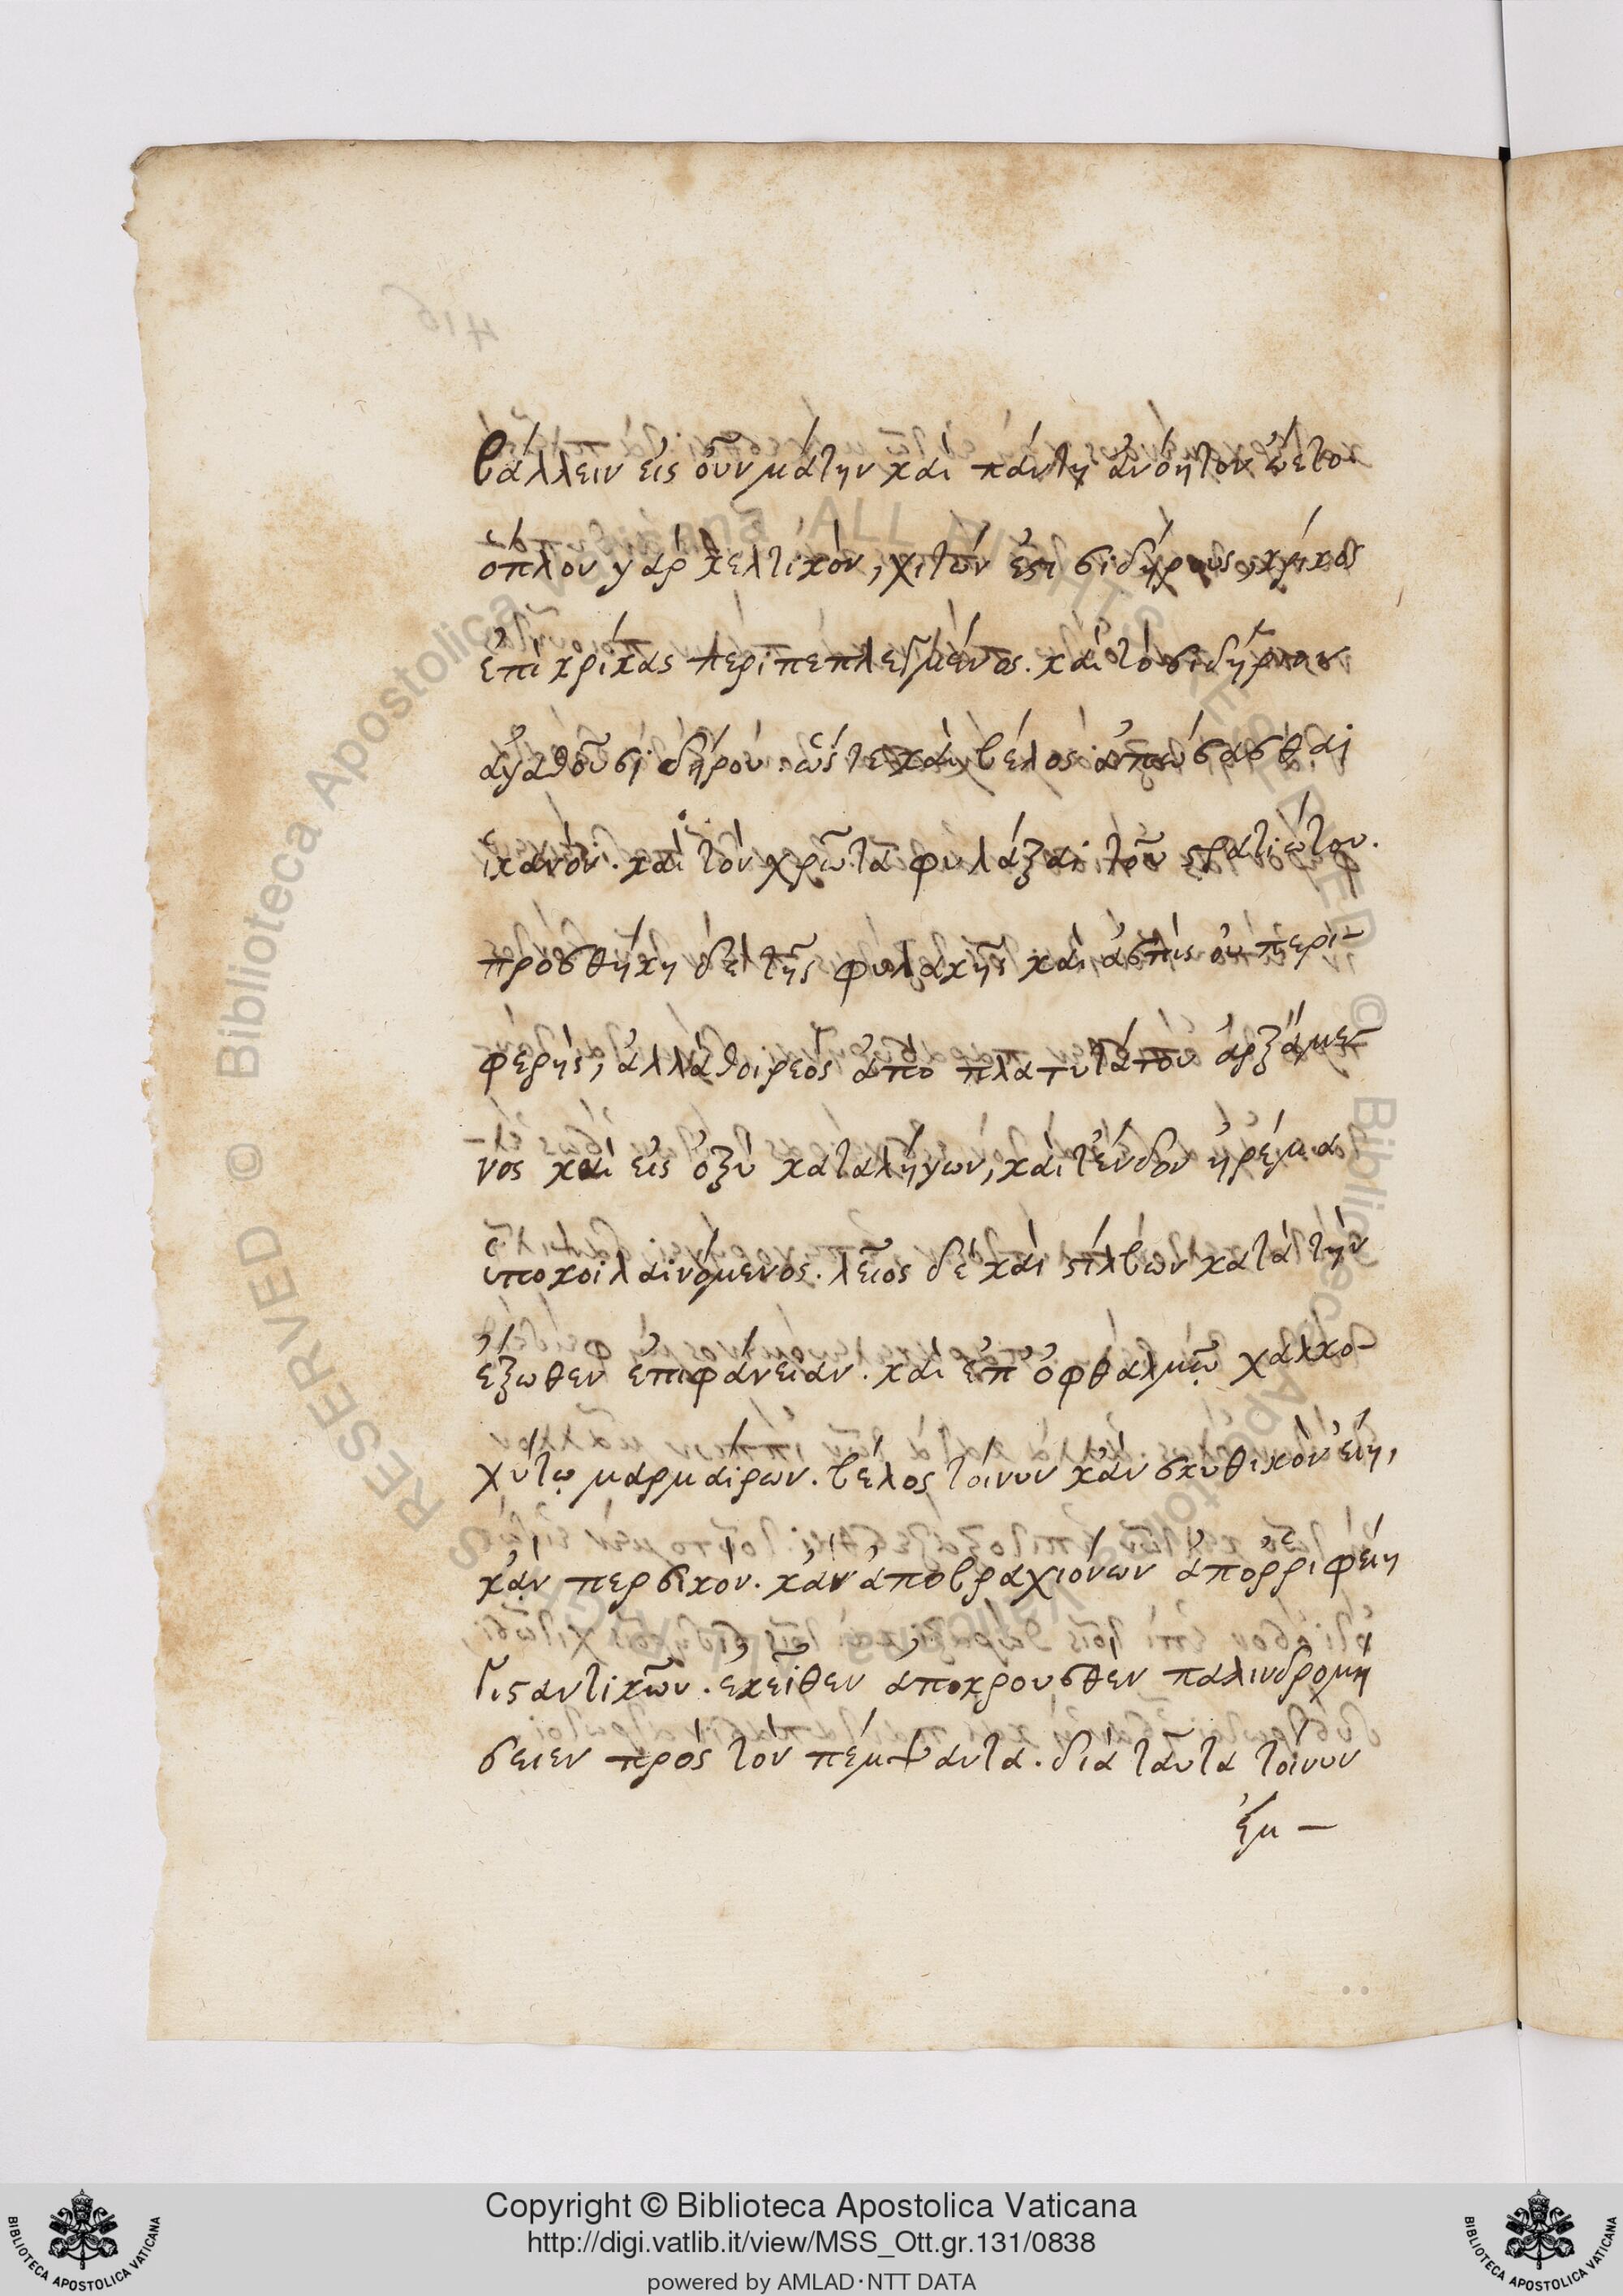 βάλλειν εἰς οὖν μάτην καὶ πάντη ἀνόητον ᾤετο·
ὅπλον γὰρ κελτικὸν, χιτών ἐστι σιδήρους, κρίκος
ἐπὶ κρίκας περιπεπλεγμένος. καὶ τὸ σιδήριον
ἀγαθοῦ σιδήρου. ὥστε καὶ βέλος ἀπώσασθαι
ἱκανόν. καὶ τὸν χρῶτα φυλάξαι τοῦ στρατιώτου.
προσθήκη δὲ τῆς φυλακῆς καὶ ἀσπὶς οὐ περι-
φερής, ἀλλὰ θυρεὸς ἀπὸ πλατυτάτου ἀρξάμε-
νος καὶ εἰς ὀξὺ καταλήγων, καὶ τἔνδον ἠρέμα
ὑποκοιλαινόμενος. λεῖος δὲ καὶ στίλβων κατὰ τὴν
ἔξωθεν ἐπιφάνειαν. καὶ ἐπ' ὀφθαλμῷ χαλκο-
χύτῳ μαρμαίρων. βέλος τοίνυν κἂν σκυθικὸν εἴη,
κἂν περσικὸν. κἂν ἀπὸ βραχιόνων ἀπορριφείη
γιγαντικῶν. ἐκεῖθεν ἀποκρουσθὲν παλινδρομή
σειεν πρὸς τὸν πέμψαντα. διὰ ταῦτα τοίνυν
ἐμ -
Copyright © Biblioteca Apostolica Vaticana
http://digi.vatlib.it/view/MSS_Ott.gr.131/0838
powered by AMLAD·NTT DATA
BIBLIOTECA APOSTOLICA VATICANA
BIBLIOTECA APOSTOLICA VATICANA